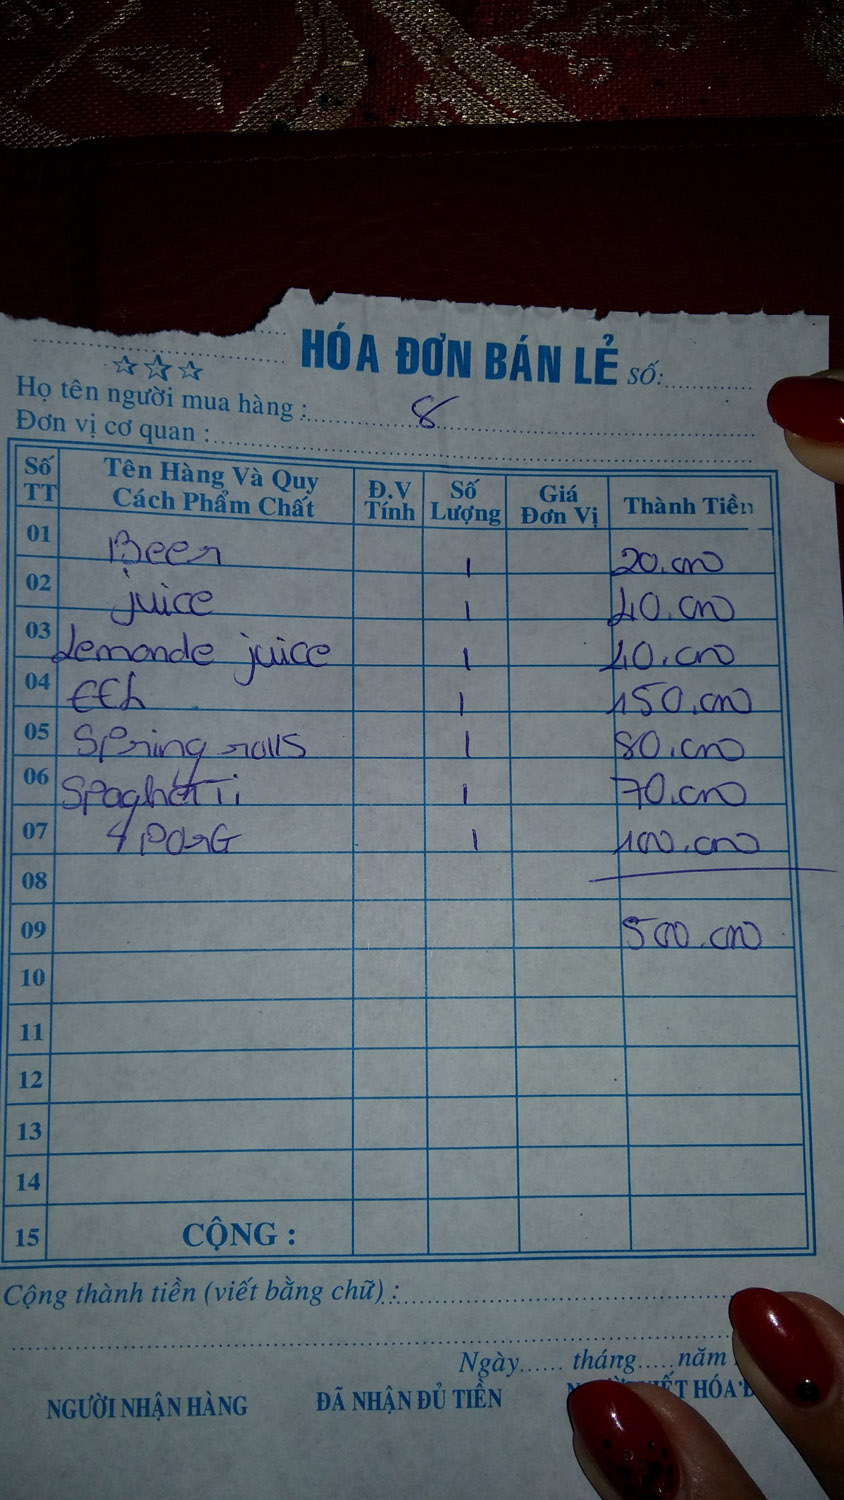 HÓA ĐƠN BÁN LẺ SỐ:
Họ tên người mua hàng : 8
Đơn vị cơ quan :
Số TT Tên Hàng Và Quy Cách Phẩm Chất Đ.V Tính Số Lượng Giá Đơn Vị Thành Tiền
01 Beer 1 20.000
02 juice 1 40.000
03 Lemonde juice 1 40.000
04 1 150.000
05 Spring rolls 1 80.000
06 Spaghetti 1 70.000
07 1 100.000
08
09 500.000
10
11
12
13
14
15 CỘNG :
Cộng thành tiền (viết bằng chữ) :
Ngày...... tháng.....năm
NGƯỜI NHẬN HÀNG ĐÃ NHẬN ĐỦ TIỀN VIẾT HÓA